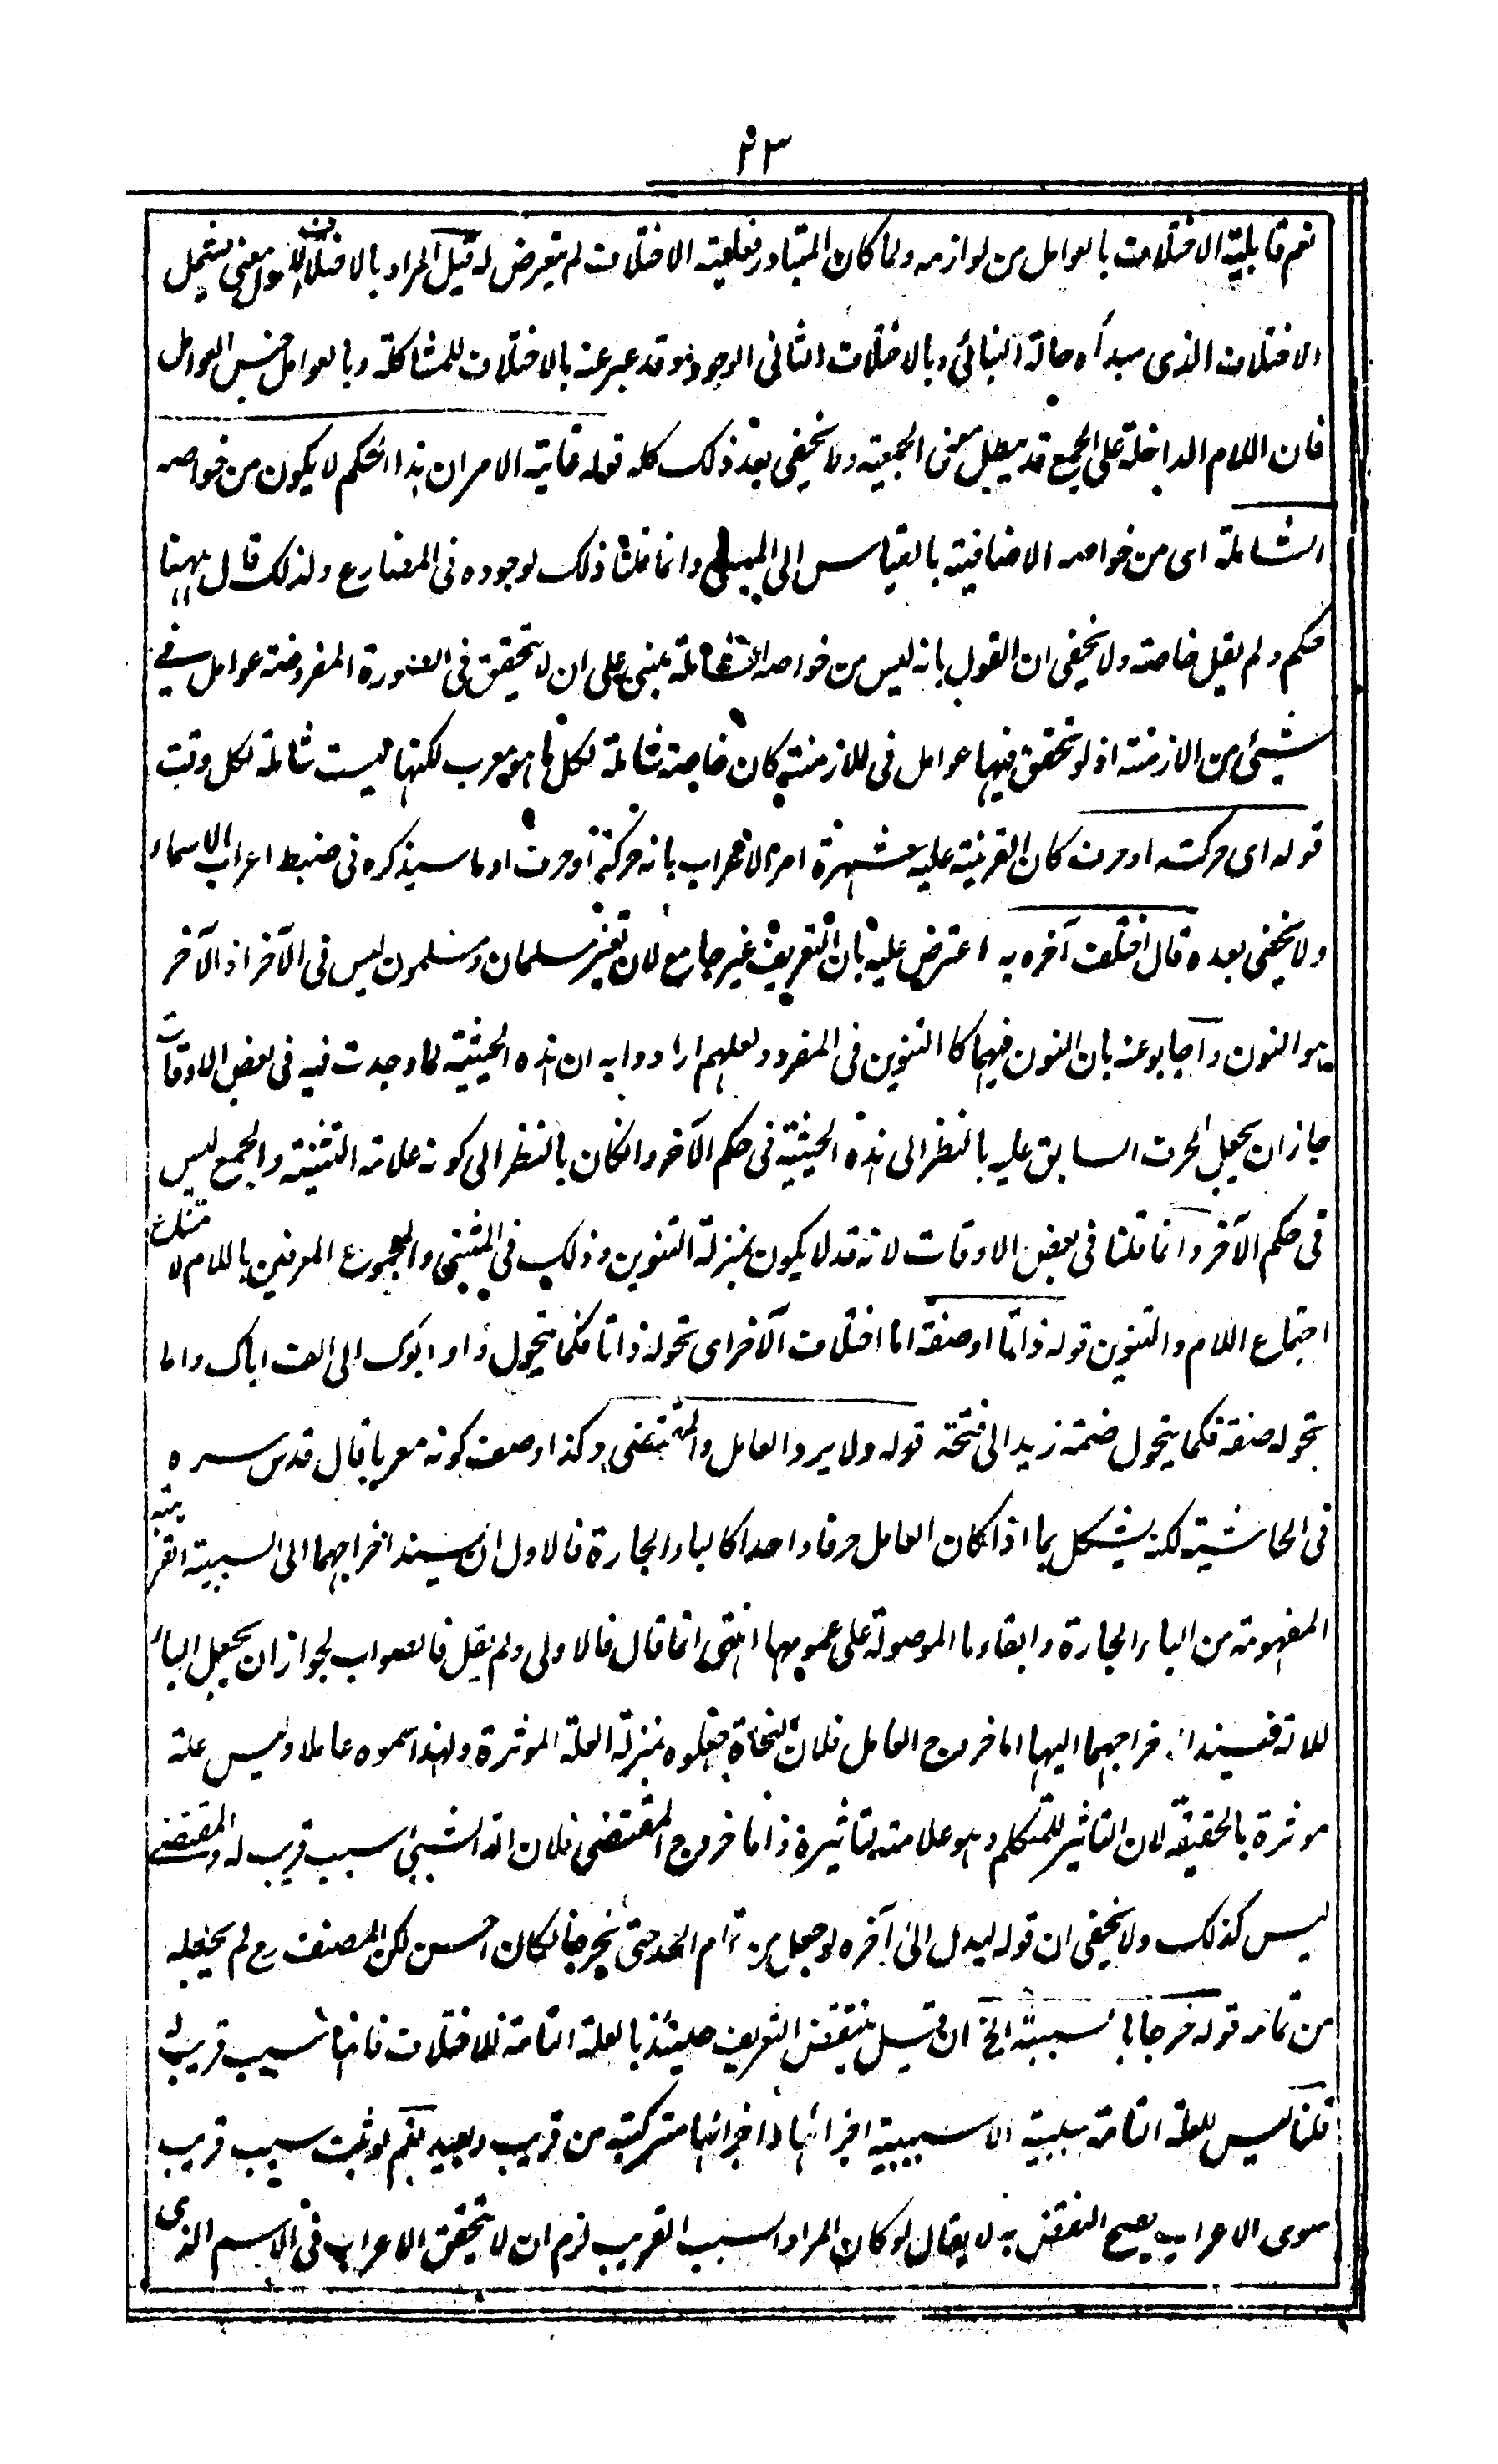 ٢٣
نعم قابلية الاختلاف بالعوامل من لوازمه ولما كان المتبادر فعلية الاختلاف لم يتعرض له قيل المراد بالاختلاف الاول معنى يشمل
الاختلاف الذى مبدأه حالة البنائى وبالاختلاف الثانى الوجود وقد عبر عنه بالاختلاف للمشاكلة وبالعوامل جنس العوامل
فان اللام الداخلة على الجمع قد يبطل معنى الجمعية ولا يخفى بعد ذلك كله قوله غاية الامر ان هذا الحكم لا يكون من خواصه
الشاملة اى من خواصه الاضافية بالقياس الى المبنى وانما قلنا ذلك لوجوده فى المضارع ولذلك قال ههنا
حكم ولم يقل خاصته ولا يخفى ان القول بانه ليس من خواصه الشاملة مبنى على ان لا يتحقق فى الصورة المفروضة عوامل فى
شيئ من الازمنة اذ لو تحقق فيها عوامل فى الازمنة كان خاصة شاملة لكل ما هو معرب لكنها ليست شاملة لكل وقت
قوله اى حركة او حرف كان القرينة عليه شهرة امر الاعراب بانه حركة او حرف او ما سيذكره فى ضبط اعراب الاسماء
ولا يخفى بعده قال اختلف آخره به اعترض عليه بان التعريف غير جامع لان تغير مسلمان ومسلمون ليس فى الآخر اذ الآخر
هو النون واجابو عنه بان النون فيهما كالتنوين فى المفرد ولعلهم ارادوا به ان هذه الحيثية لما وجدت فيه فى بعض الاوقات
جاز ان يجعل الحرف السابق عليه بالنظر الى هذه الحيثية فى حكم الآخر وانكان بالنظر الى كونه علامة التثنية والجمع ليس
فى حكم الآخر وانما قلنا فى بعض الاوقات لانه قد لا يكون بمنزلة التنوين وذلك فى المثنى والمجموع المعرفين باللام لامتناع
اجتماع اللام والتنوين قوله ذاتا او صفة اما اختلاف الآخر اى تحوله ذاتا فكما يتحول واو ابوك الى الف اباك واما
تحوله صفة فكما يتحول ضمة زيد الى فتحة قوله ولا يرد العامل والمقتضى وكذا وصف كونه معربا قال قدس سره
فى الحاشية لكنه يشكل بما اذا كان العامل حرفا واحدا كالباء الجارة فالاولى ان يسند اخراجهما الى السببية القريبة
المفهومة من الباء الجارة وابقاء ما الموصولة على عمومها انتهى انما قال فالاولى ولم يقل فالصواب لجواز ان يجعل الباء
للآلة فيسند اخراجهما اليها اما خروج العامل فلان النحاة جعلوه بمنزلة العلة الموثرة ولهذا سموه عاملا وليس علة
موثرة بالحقيقة لان التاثير للمتكلم وهو علامة لتاثيره واما خروج المقتضى فلان آلة الشيئ سبب قريب له والمقتضى
ليس كذلك ولا يخفى ان قوله ليدل الى آخره لو جعل من تمام الحد حتى يخرجا لكان احسن لكن المصنف رح لم يجعله
من تمامه قوله خرجا بالسببية الخ ان قيل ينتقض التعريف حينئذ بالعلة التامة للاختلاف فانها سبب قريب له
قلنا ليس للعلة التامة سببية الا سببية اجزائها واجزائها مركبة من قريب وبعيد نعم لو ثبت سبب قريب
سوى الاعراب يصح النقض به لا يقال لو كان المراد السبب القريب لزم ان لا يتحقق الاعراب فى الاسم الذى